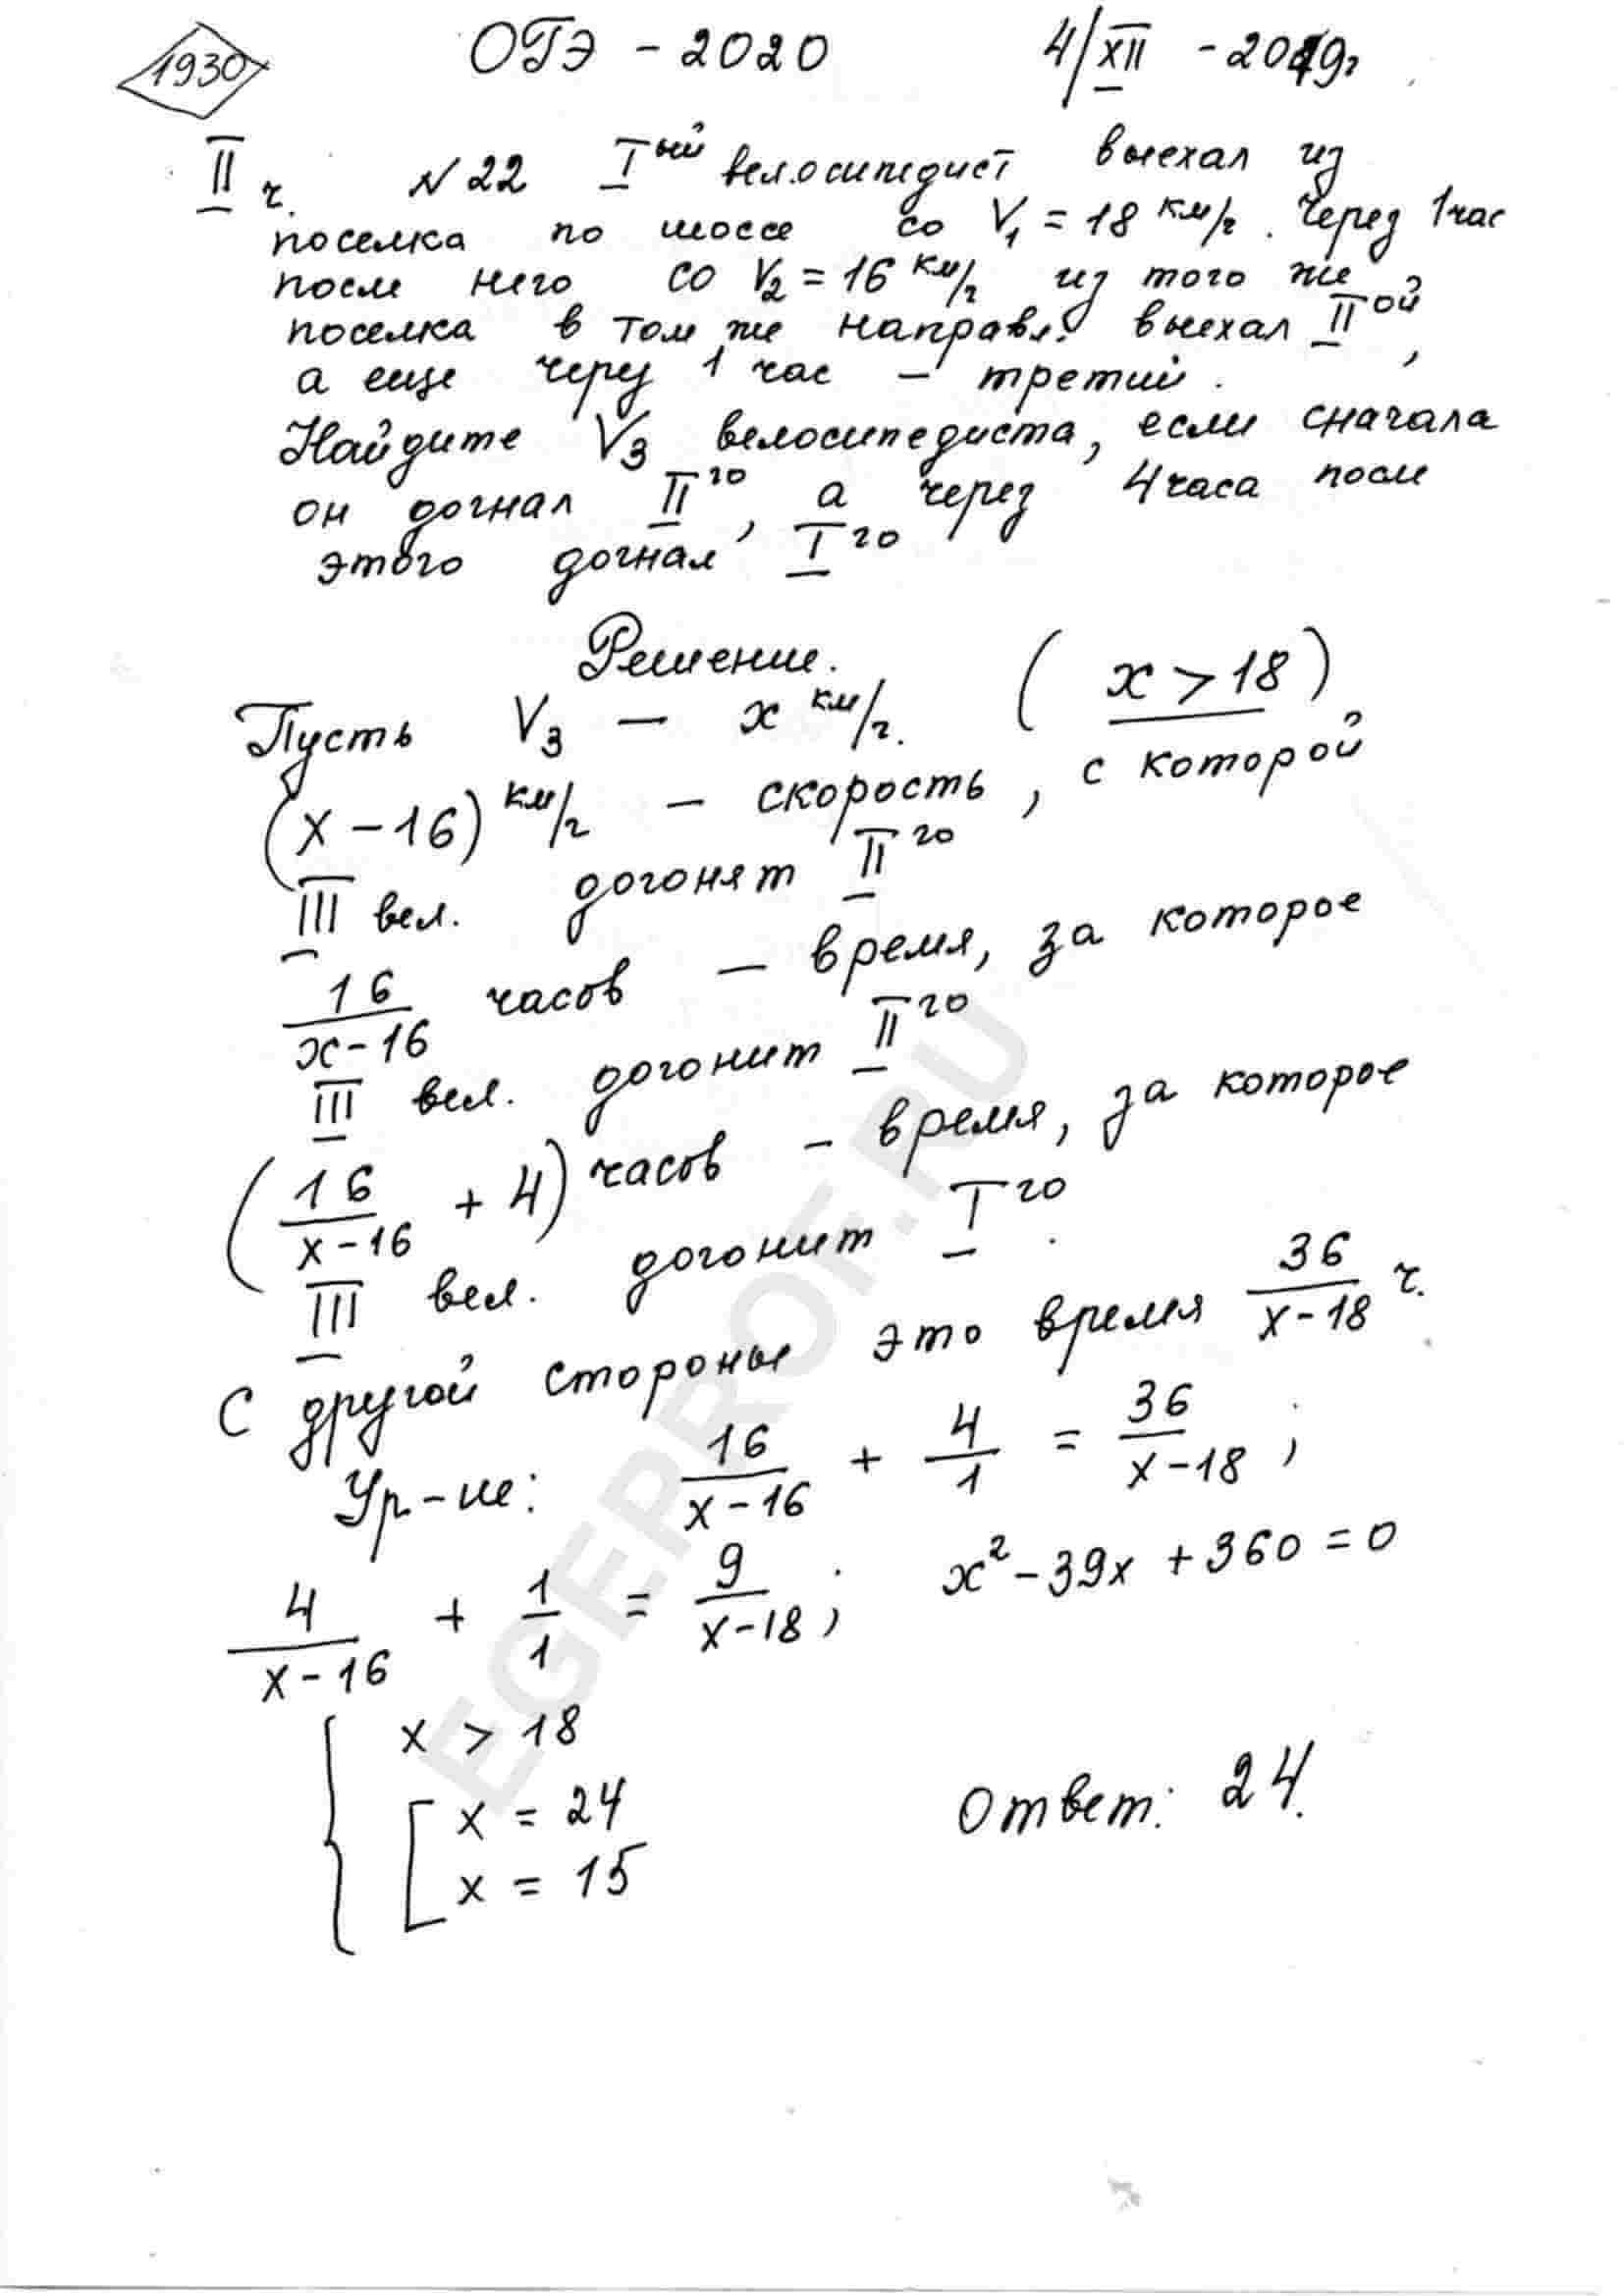 1930 ОГЭ - 2020 4/XII - 2019г
II ч. №22 Iый велосипедист выехал из
поселка по шоссе со V₁ = 18 км/ч. Через 1час
после него со V₂ = 16 км/ч из того же
поселка в том же направл. выехал IIой,
а еще через 1 час – третий.
Найдите V₃ велосипедиста, если сначала
он догнал IIго, а через 4часа после
этого догнал Iго
Решение.
Пусть V₃ — x км/ч. (x > 18)
(x – 16) км/ч – скорость, с которой
III вел. догонят IIго
16/(x-16) часов – время, за которое
III вел. догонит IIго
(16/(x-16) + 4) часов – время, за которое
III вел. догонит Iго.
С другой стороны это время 36/(x-18) ч.
Ур-ие: 16/(x-16) + 4/1 = 36/(x-18);
4/(x-16) + 1/1 = 9/(x-18); x² - 39x + 360 = 0
{ x > 18
[ x = 24
x = 15
Ответ: 24.
EGEPROF.RU